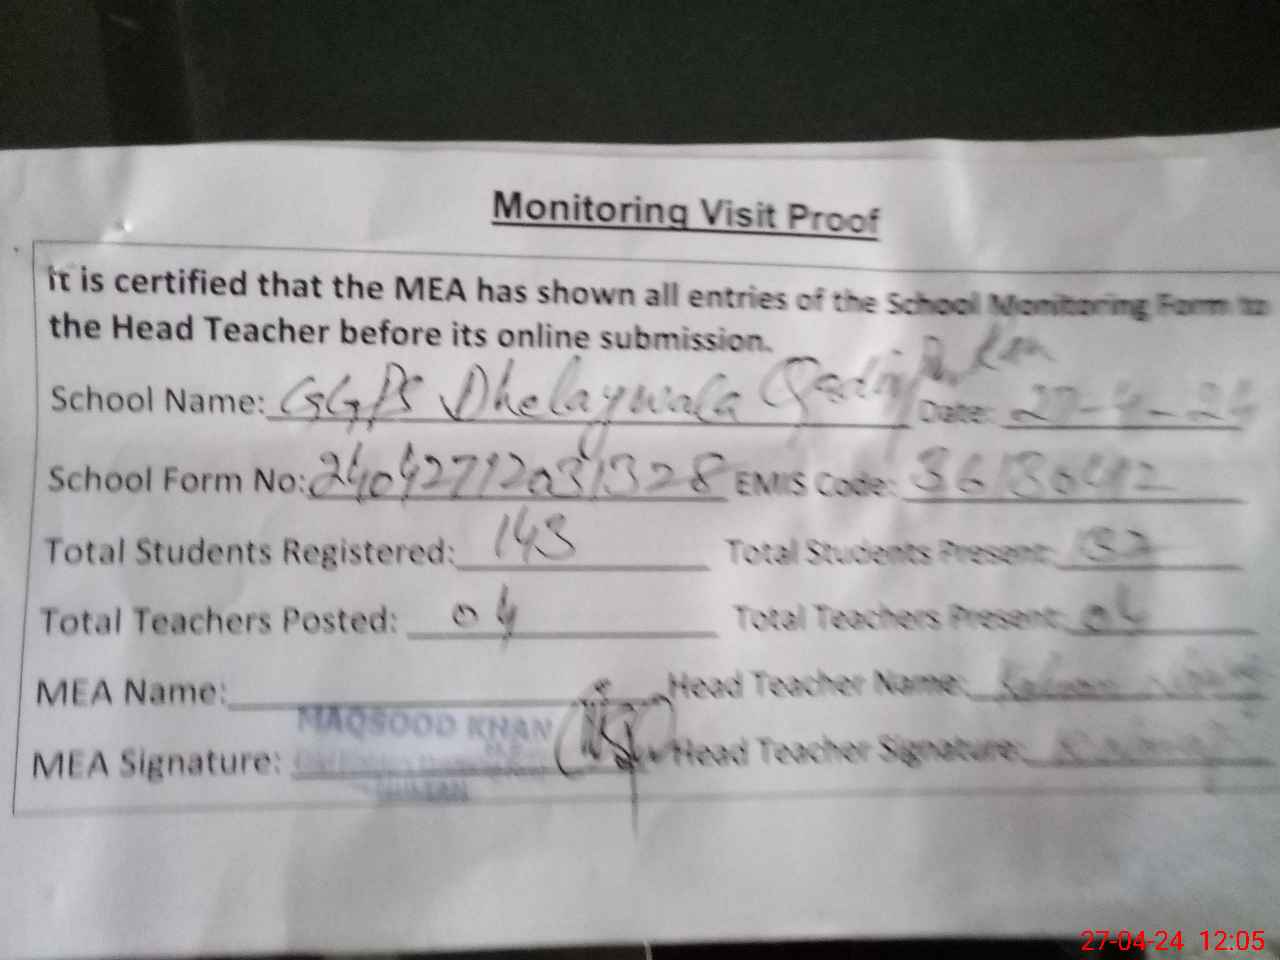 Monitoring Visit Proof
it is certified that the MEA has shown all entries of the School Monitoring Form to
the Head Teacher before its online submission.
School Name: GGPS Dhelaywala Date: 27-4-24
School Form No: 24042712031328 EMIS Code: 36130412
Total Students Registered: 143 Total Students Present: 132
Total Teachers Posted: 04 Total Teachers Present: 04
MEA Name: Head Teacher Name:
MAQSOOD KHAN
MEA Signature: Head Teacher Signature:
MULTAN
27-04-24 12:05